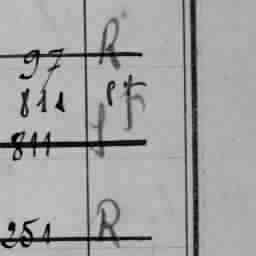 97 R
811
811
251 R